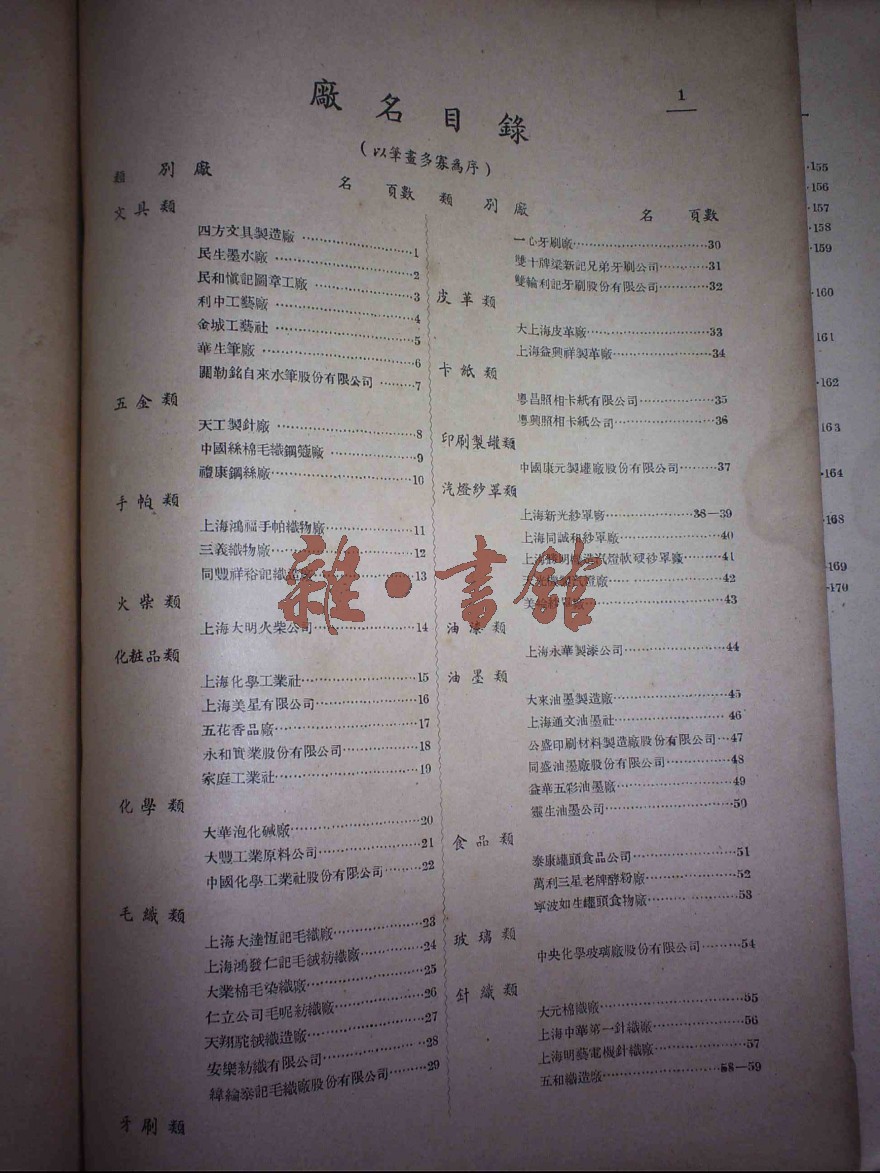 1
廠名目錄
(以筆畫多寡為序)
類別 廠名 頁數
文具類
四方文具製造廠 1
民生墨水廠 2
民和愼記圖章工廠 3
利中工藝廠 4
金城工藝社 5
華生筆廠 6
關勒銘自來水筆股份有限公司 7
五金類
天工製針廠 8
中國絲棉毛織鋼筘廠 9
禮康鋼絲廠 10
手帕類
上海鴻福手帕織物廠 11
三義織物廠 12
同豐祥裕記織造廠 13
火柴類
上海大明火柴公司 14
化粧品類
上海化學工業社 15
上海美星有限公司 16
五花香品廠 17
永和實業股份有限公司 18
家庭工業社 19
化學類
大華泡化碱廠 20
大豐工業原料公司 21
中國化學工業社股份有限公司 22
毛織類
上海大達恆記毛織廠 23
上海鴻發仁記毛絨紡織廠 24
大業棉毛染織廠 25
仁立公司毛呢紡織廠 26
天翔駝絨織造廠 27
安樂紡織有限公司 28
緯綸泰記毛織廠股份有限公司 29
牙刷類
類別 廠名 頁數
一心牙刷廠 30
雙十牌梁新記兄弟牙刷公司 31
雙輪利記牙刷股份有限公司 32
皮革類
大上海皮革廠 33
上海益興祥製革廠 34
卡紙類
粵昌照相卡紙有限公司 35
粵興照相卡紙公司 36
印刷製罐類
中國康元製罐廠股份有限公司 37
汽燈紗罩類
上海新光紗罩廠 38—39
上海同誠和紗罩廠 40
上海 明 造汽燈軟硬紗罩廠 41
天光 汽燈廠 42
美 紗罩廠 43
油漆類
上海永華製漆公司 44
油墨類
大來油墨製造廠 45
上海通文油墨社 46
公盛印刷材料製造廠股份有限公司 47
同盛油墨廠股份有限公司 48
益華五彩油墨廠 49
靈生油墨公司 50
食品類
泰康罐頭食品公司 51
萬利三星老牌酵粉廠 52
寧波如生罐頭食物廠 53
玻璃類
中央化學玻璃廠股份有限公司 54
針織類
大元棉織廠 55
上海中華第一針織廠 56
上海明藝電機針織廠 57
五和織造廠 58—59
155
156
157
158
159
160
161
162
163
164
168
169
170
雜·書館